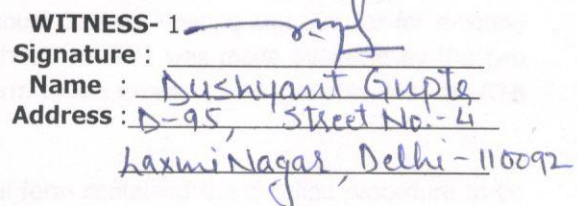 WITNESS- 1
Signature :
Name : Dushyant Gupta
Address : D-95, Street No.- 4
Laxmi Nagar, Delhi - 110092